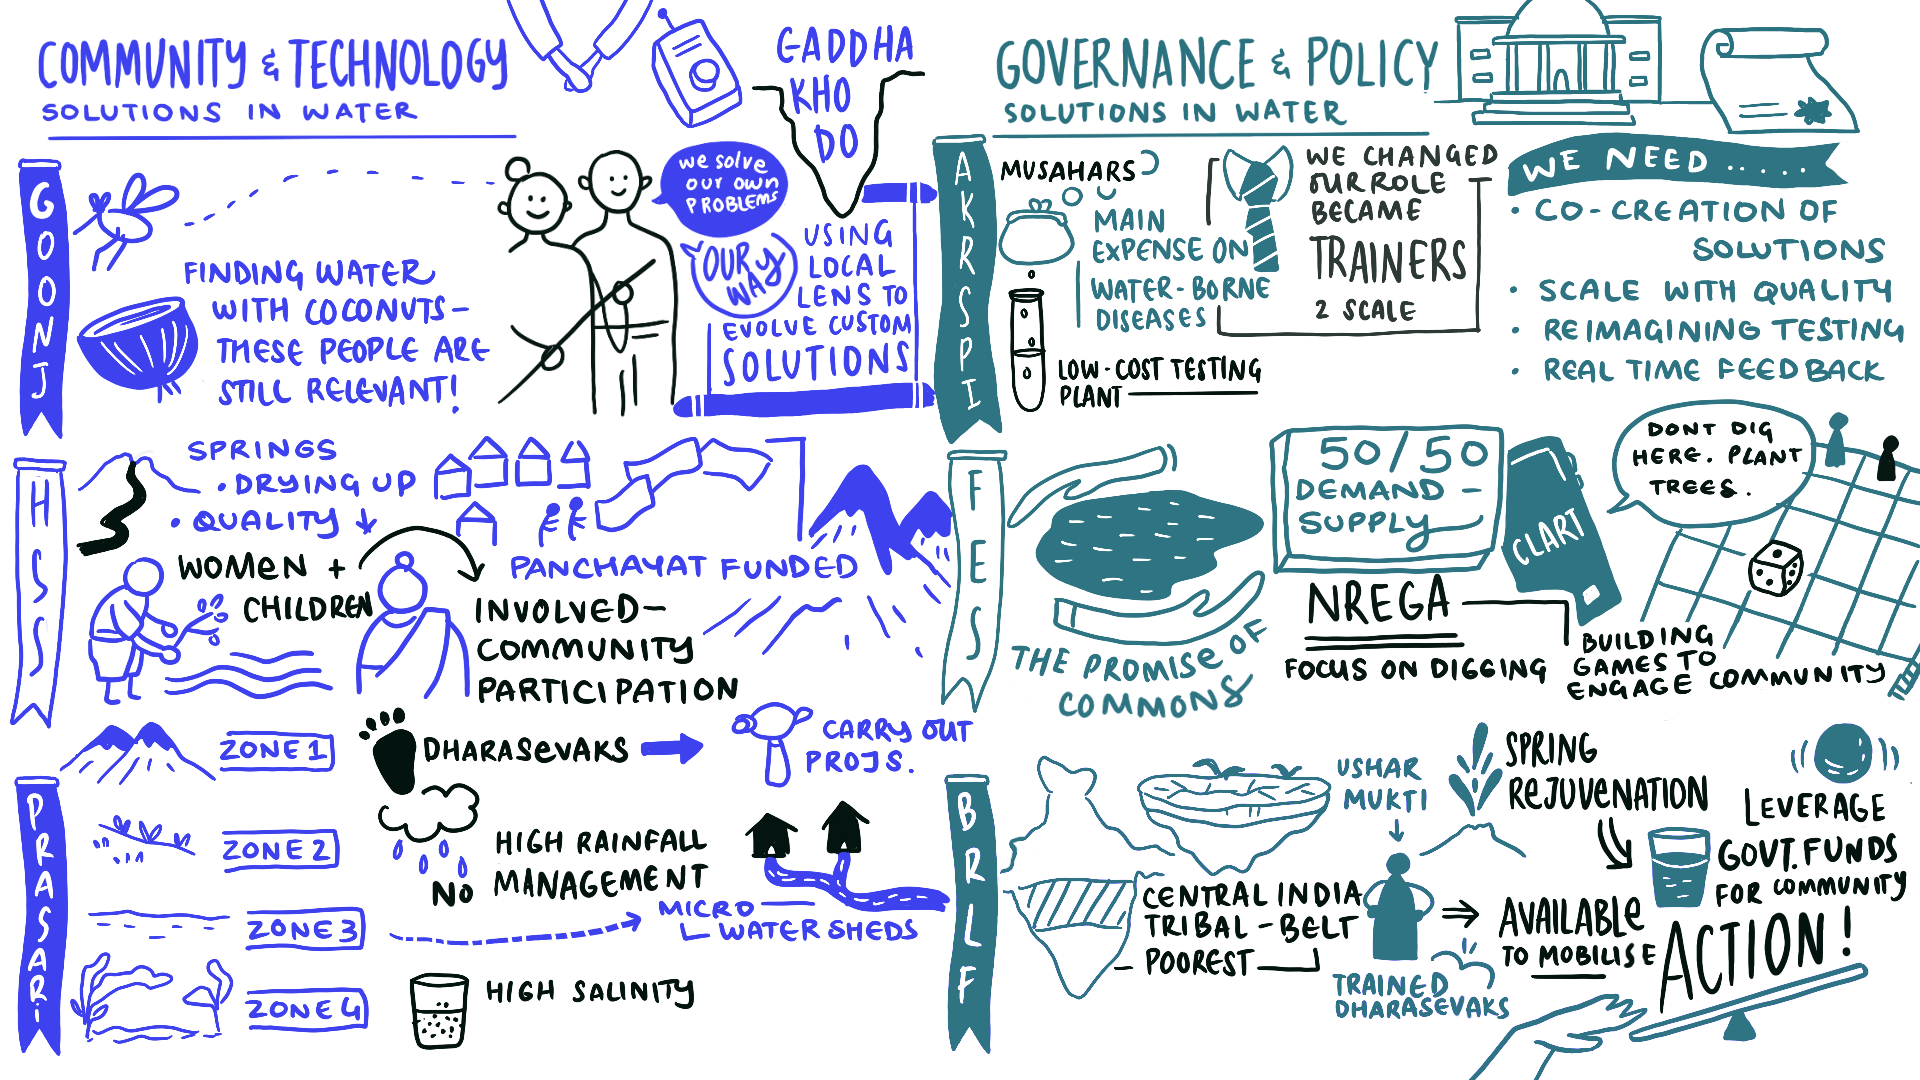 COMMUNITY & TECHNOLOGY
SOLUTIONS IN WATER
GOONJ
FINDING WATER
WITH COCONUTS—
THESE PEOPLE ARE
STILL RELEVANT!
we solve
our own
PROBLEMS
OUR
WAY
GADDHA
KHO
DO
USING
LOCAL
LENS TO
EVOLVE CUSTOM
SOLUTIONS
HSS
SPRINGS
• DRYING UP
• QUALITY ↓
WOMEN +
CHILDREN
INVOLVED—
COMMUNITY
PARTICIPATION
PANCHAYAT FUNDED
PRASARI
ZONE 1
DHARASEVAKS
CARRY OUT
PROJS.
ZONE 2
NO
HIGH RAINFALL
MANAGEMENT
ZONE 3
MICRO
WATER SHEDS
ZONE 4
HIGH SALINITY
GOVERNANCE & POLICY
SOLUTIONS IN WATER
AKRSPI
MUSAHARS
MAIN
EXPENSE ON
WATER-BORNE
DISEASES
LOW-COST TESTING
PLANT
WE CHANGED
OUR ROLE
BECAME
TRAINERS
2 SCALE
WE NEED .....
• CO-CREATION OF
SOLUTIONS
• SCALE WITH QUALITY
• REIMAGINING TESTING
• REAL TIME FEEDBACK
FES
THE PROMISE OF
COMMONS
50/50
DEMAND -
SUPPLY
NREGA
FOCUS ON DIGGING
CLART
DONT DIG
HERE. PLANT
TREES.
BUILDING
GAMES TO
ENGAGE COMMUNITY
BRLF
CENTRAL INDIA
TRIBAL-BELT
— POOREST
USHAR
MUKTI
TRAINED
DHARASEVAKS
SPRING
REJUVENATION
AVAILABLE
TO MOBILISE
LEVERAGE
GOVT. FUNDS
FOR COMMUNITY
ACTION!